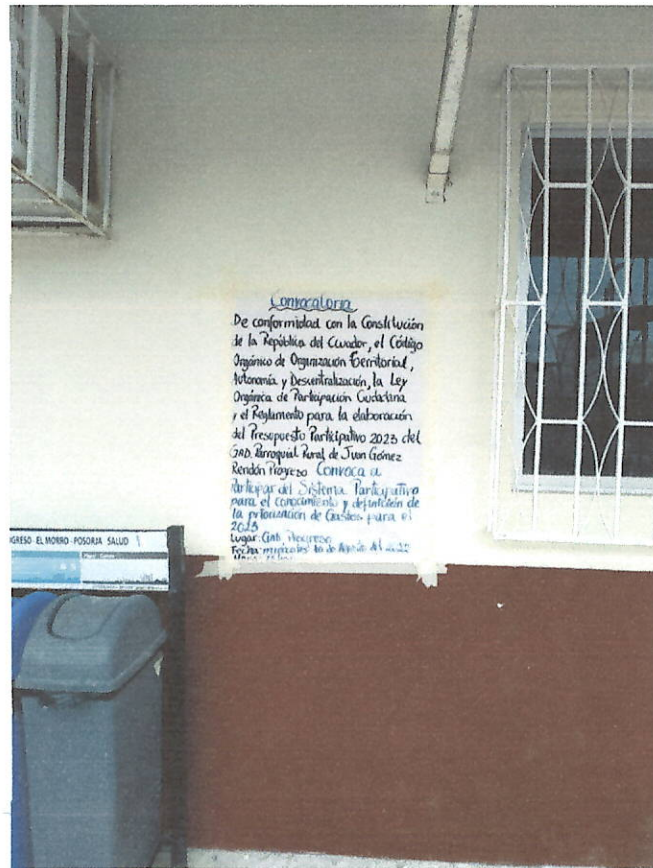 Convocatoria
De conformidad con la Constitución
de la República del Ecuador, el Código
Orgánico de Organización Territorial,
Autonomía y Descentralización, la Ley
Orgánica de Participación Ciudadana
y el Reglamento para la elaboración
del Presupuesto Participativo 2023 del
GAD. Parroquial Rural de Juan Gómez
Rendón Progreso Convoca a
Participar del Sistema Participativo
para el conocimiento y definición de
la priorización de Gastos para el
2023
Lugar: Gad. Progreso
Fecha: miércoles 10 de Agosto del 2022
GRESO - EL MORRO - POSORJA SALUD